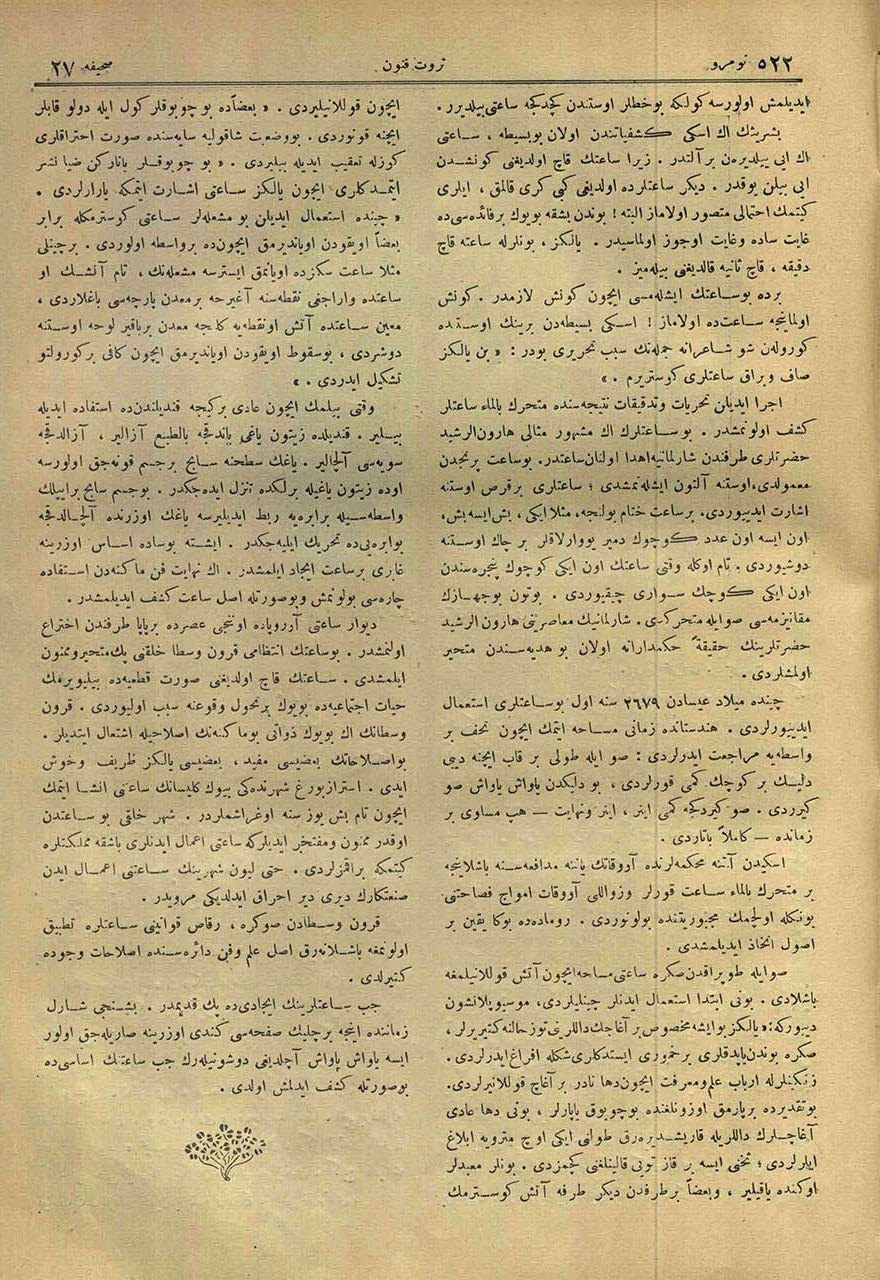 نومرو ٥٢٢
ثروت فنون
صحیفه ٢٧
ایدیلمش اولورسه كولكه بو خطلر اوستندن كچدكجه ساعتی بیلدیرر.
بشریتك اك اسكی كشفیاتندن اولان بو بسیطه ، ساعتی
اك ایی بیلدیره‌ن بر آلتدر . زیرا ساعتك قاچ اولدیغنی كونشدن
ایی بیلن یوقدر . دیكر ساعتلرده اولدیغی كبی كری قالمق ، ایلری
كیتمك احتمالی متصور اولاماز البته ! بوندن بشقه بویوك بر فائده‌سی ده
غایت ساده وغایت اوجوز اولماسیدر . یالكز ، بونلرله ساعته قاچ
دقیقه ، قاچ ثانیه قالدیغنی بیله‌میز .
برده بو ساعتك ایشله‌مسی ایچون كونش لازمدر . كونش
اولماینجه ساعت ده اولاماز ! اسكی بسیطه‌دن برینك اوستنده
كوروله‌ن شو شاعرانه جمله‌نك سبب تحریری بودر : « بن یالكز
صاف و براق ساعتلری كوستریرم . »
اجرا ایدیلن تحریات وتدقیقات نتیجه‌سنده متحرك بالماء ساعتلر
كشف اولونمشدر . بو ساعتلرك اك مشهور مثالی هارون الرشید
حضرتلری طرفندن شارلمانیه اهدا اولنان ساعتدر. بو ساعت پرنجدن
معمولدی، اوستنه آلتون ایشله‌نمشدی ؛ ساعتلری برقرص اوستنه
اشارت ایدییوردی. برساعت ختام بولنجه، مثلا ایكی ، بش ایسه بش،
اون ایسه اون عدد كوچوك دمیر یووارلاقلر بر چاك اوستنه
دوشیوردی . تام اوكله وقتی ساعتك اون ایكی كوچوك پنجره‌سندن
اون ایكی كوچك سواری چیقیوردی . بوتون بو جهازك
مقانیزمه‌سی صو ایله متحركدی . شارلمانیك معاصریتی هارون الرشید
حضرتلرینك حقیقةً حكمدارانه اولان بو هدیه‌سندن متحیر
اولمشلردی .
چینده میلاد عیسادن ٢٦٧٩ سنه اول بو ساعتلری استعمال
ایدییورلردی . هندستانده زمانی مساحه ایتمك ایچون تحف بر
واسطه‌یه مراجعت ایدرلردی : صو ایله طولی بر قاب ایچنه دیبی
دلیك بر كوچك كمی قورلردی ، بو دلیكدن یاواش یاواش صو
كیرردی . صو كیردكجه كمی اینر ، اینر ونهایت — هپ مساوی بر
زمانده — كاملاً باتاردی .
اسكیدن آتنه محكمه‌لرنده آووقاتك یاننه مدافعه‌سنه باشلاینجه
بر متحرك بالماء ساعت قورلر وزواللی آووقات امواج فصاحتنی
بونكله اولچمك مجبوریتنده بولونوردی . روماده ده بوكا یقین بر
اصول اتخاذ ایدیلمشدی .
صو ایله طوپراقدن صكره ساعتی مساحه ایچون آتش قوللانیلمغه
باشلادی . بونی ابتدا استعمال ایدنلر چینلیلردی، موسیو پلانشون
دییوركه: « یالكز بو ایشه مخصوص بر آغاجك داللرینی توز حالنه كتیریرلر ،
صكره بوندن یاپدقلری برخموری ایستدكلری شكله افراغ ایدرلردی .
زنكینلرله ارباب علم ومعرفت ایچون دها نادر بر آغاچ قوللانیرلردی.
بو تقدیرده برپارمق اوزونلغنده بو چوبوق یاپارلر ، بونی دها عادی
آغاجلرك داللریله قاریشدیره‌رق طولنی ایكی اوچ مترویه ابلاغ
ایلرلردی ؛ ثخنی ایسه بر قاز تویی قالینلغنی كچمزدی . بونلر معبدلر
اوكنده یاقیلیر ، وبعضاً بر طرفدن دیكر طرفه آتش كوسترمك
ایچون قوللانیلیردی . « بعضاً ده بو چوبوقلر كول ایله دولو قابلر
ایچنه قونوردی . بو وضعیت شاقولیه سایه‌سنده صورت احتراقلری
كوزله تعقیب ایدیله بیلیردی . « بو چوبوقلر یاناركن ضیا نشر
ایتمدكلری ایچون یالكز ساعتی اشارت ایتمكه یارارلردی .
« چینده استعمال ایدیلن بو مشعله‌لر ساعتی كوسترمكله برابر
بعضاً اویقودن اویاندیرمق ایچون ده بر واسطه اولوردی . بر چینلی
مثلا ساعت سكزده اویانمق ایسترسه مشعله‌نك ، تام آتشك او
ساعتده واراجغی نقطه‌سنه آغیرجه بر معدن پارچه‌سی باغلاردی ،
معین ساعتده آتش او نقطه‌یه كلنجه معدن بر باقیر لوحه اوستنه
دوشردی ، بو سقوط اویقودن اویاندیرمق ایچون كافی بر كورولتو
تشكیل ایدردی . »
وقتی بیلمك ایچون عادی بر كیجه قندیلندن ده استفاده ایدیله
بیلیر . قندیلده زیتون یاغی یاندقجه بالطبع آزالیر ، آزالدقجه
سویه‌سی آلچالیر . یاغك سطحنه سابح بر جسم قونه‌جق اولورسه
اوده زیتون یاغیله برلكده تنزل ایده‌جكدر . بو جسم سابح بر ایپلك
واسطه‌سیله بر ابره‌یه ربط ایدیلیرسه یاغك اوزرنده آلچالدقجه
بو ابره‌یی ده تحریك ایلیه‌جكدر . ایشته بو ساده اساس اوزرینه
غازی بر ساعت ایجاد ایلمشدر . اك نهایت فن ماكنه‌دن استفاده
چاره‌سی بولونمش وبو صورتله اصل ساعت كشف ایدیلمشدر .
دیوار ساعتی آوروپاده اوننجی عصرده بر پاپا طرفندن اختراع
اولنمشدر . بو ساعتك انتظامی قرون وسطا خلقنی پك متحیر وممنون
ایلمشدی . ساعتك قاچ اولدیغنی صورت قطعیه‌ده بیلیویرمك
حیات اجتماعیه‌ده بویوك بر تحول وقوعنه سبب اولیوردی . قرون
وسطانك اك بویوك ذواتی بو ماكنه‌نك اصلاحیله اشتغال ایتدیلر .
بو اصلاحاتك بعضیسی مفید ، بعضیسی یالكز ظریف وخوش
ایدی . استرازبورغ شهرنده‌كی بیوك كلیسانك ساعتنی انشا ایتمك
ایچون تام بش یوز سنه اوغراشملردر . شهر خلقی بو ساعتدن
اوقدر ممنون ومفتخر ایدیلركه ساعتی اعمال ایدنلری باشقه مملكتلره
كیتمكه براقمزلردی . حتی لیون شهرینك ساعتنی اعمال ایدن
صنعتكارك دیری دیر احراق ایدلدیكی مرویدر .
قرون وسطادن صوكره ، رقاص قوانینی ساعتلره تطبیق
اولونمغه باشلانه‌رق اصل علم وفن دائره‌سنده اصلاحات وجوده
كتیرلدی .
جب ساعتلرینك ایجادی ده پك قدیمدر . بشنجی شارل
زماننده اینجه بر چلیك صفحه‌سی كندی اوزرینه صاریله‌جق اولور
ایسه یاواش یاواش آچلدیغی دوشونیله‌رك جب ساعتنك اساسی ده
بو صورتله كشف ایدلمش اولدی .